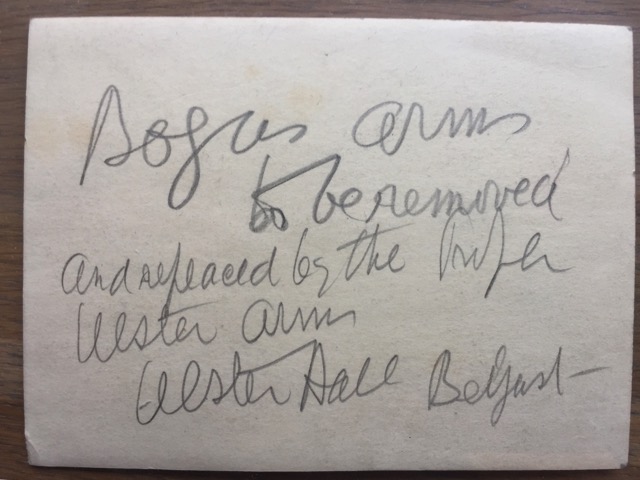 Bogus arms
to be removed
and replaced by the proper
Ulster arms
Ulster Hall Belfast